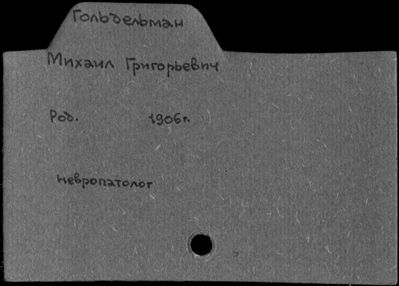 Гольдельман
Михаил Григорьевич
Род. 1906 г.
невропатолог